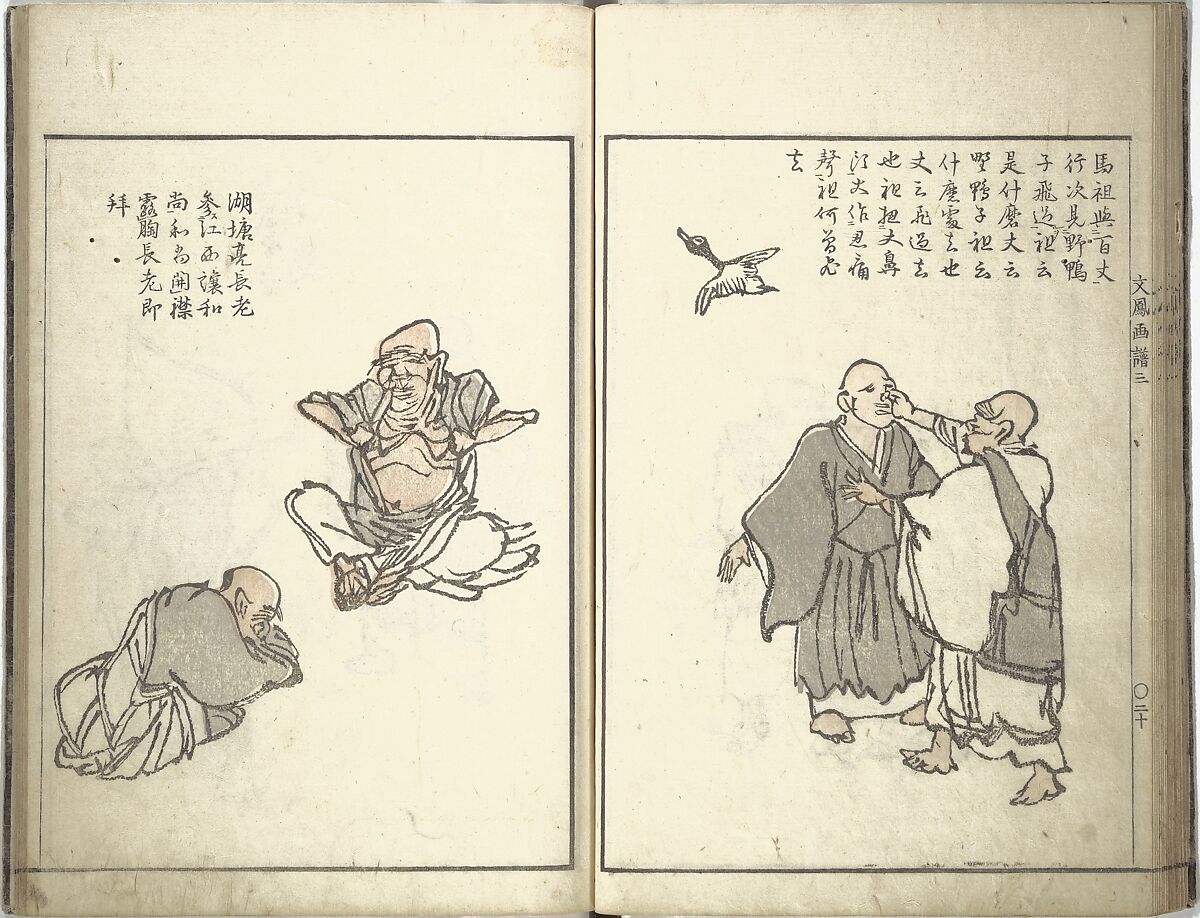 馬祖與百丈
行次見野鴨
子飛過祖云
是什麼丈云
野鴨子祖云
什麼處去也
丈云飛過去
也祖扭丈鼻
頭丈作忍痛
聲祖何曾飛
去
文鳳画譜二
〇二十
湖塘亮長老
參江西讓和
尚和尚開襟
露胸長老即
拜